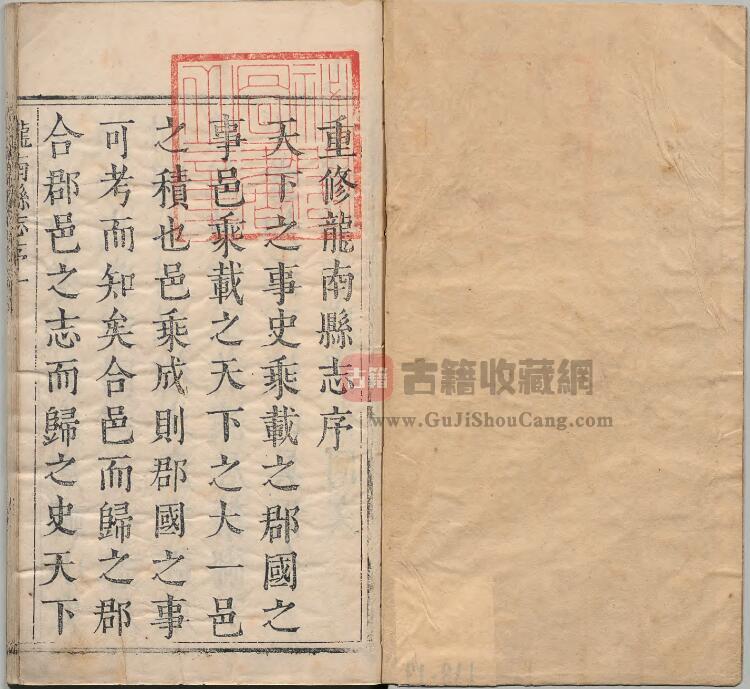 重修龍南縣志序
天下之事史乘載之郡國之
事邑乘載之天下之大一邑
之積也邑乘成則郡國之事
可考而知矣合邑而歸之郡
合郡邑之志而歸之史天下
龍南縣志序 一
古籍 古籍收藏網
www.GuJiShouCang.com